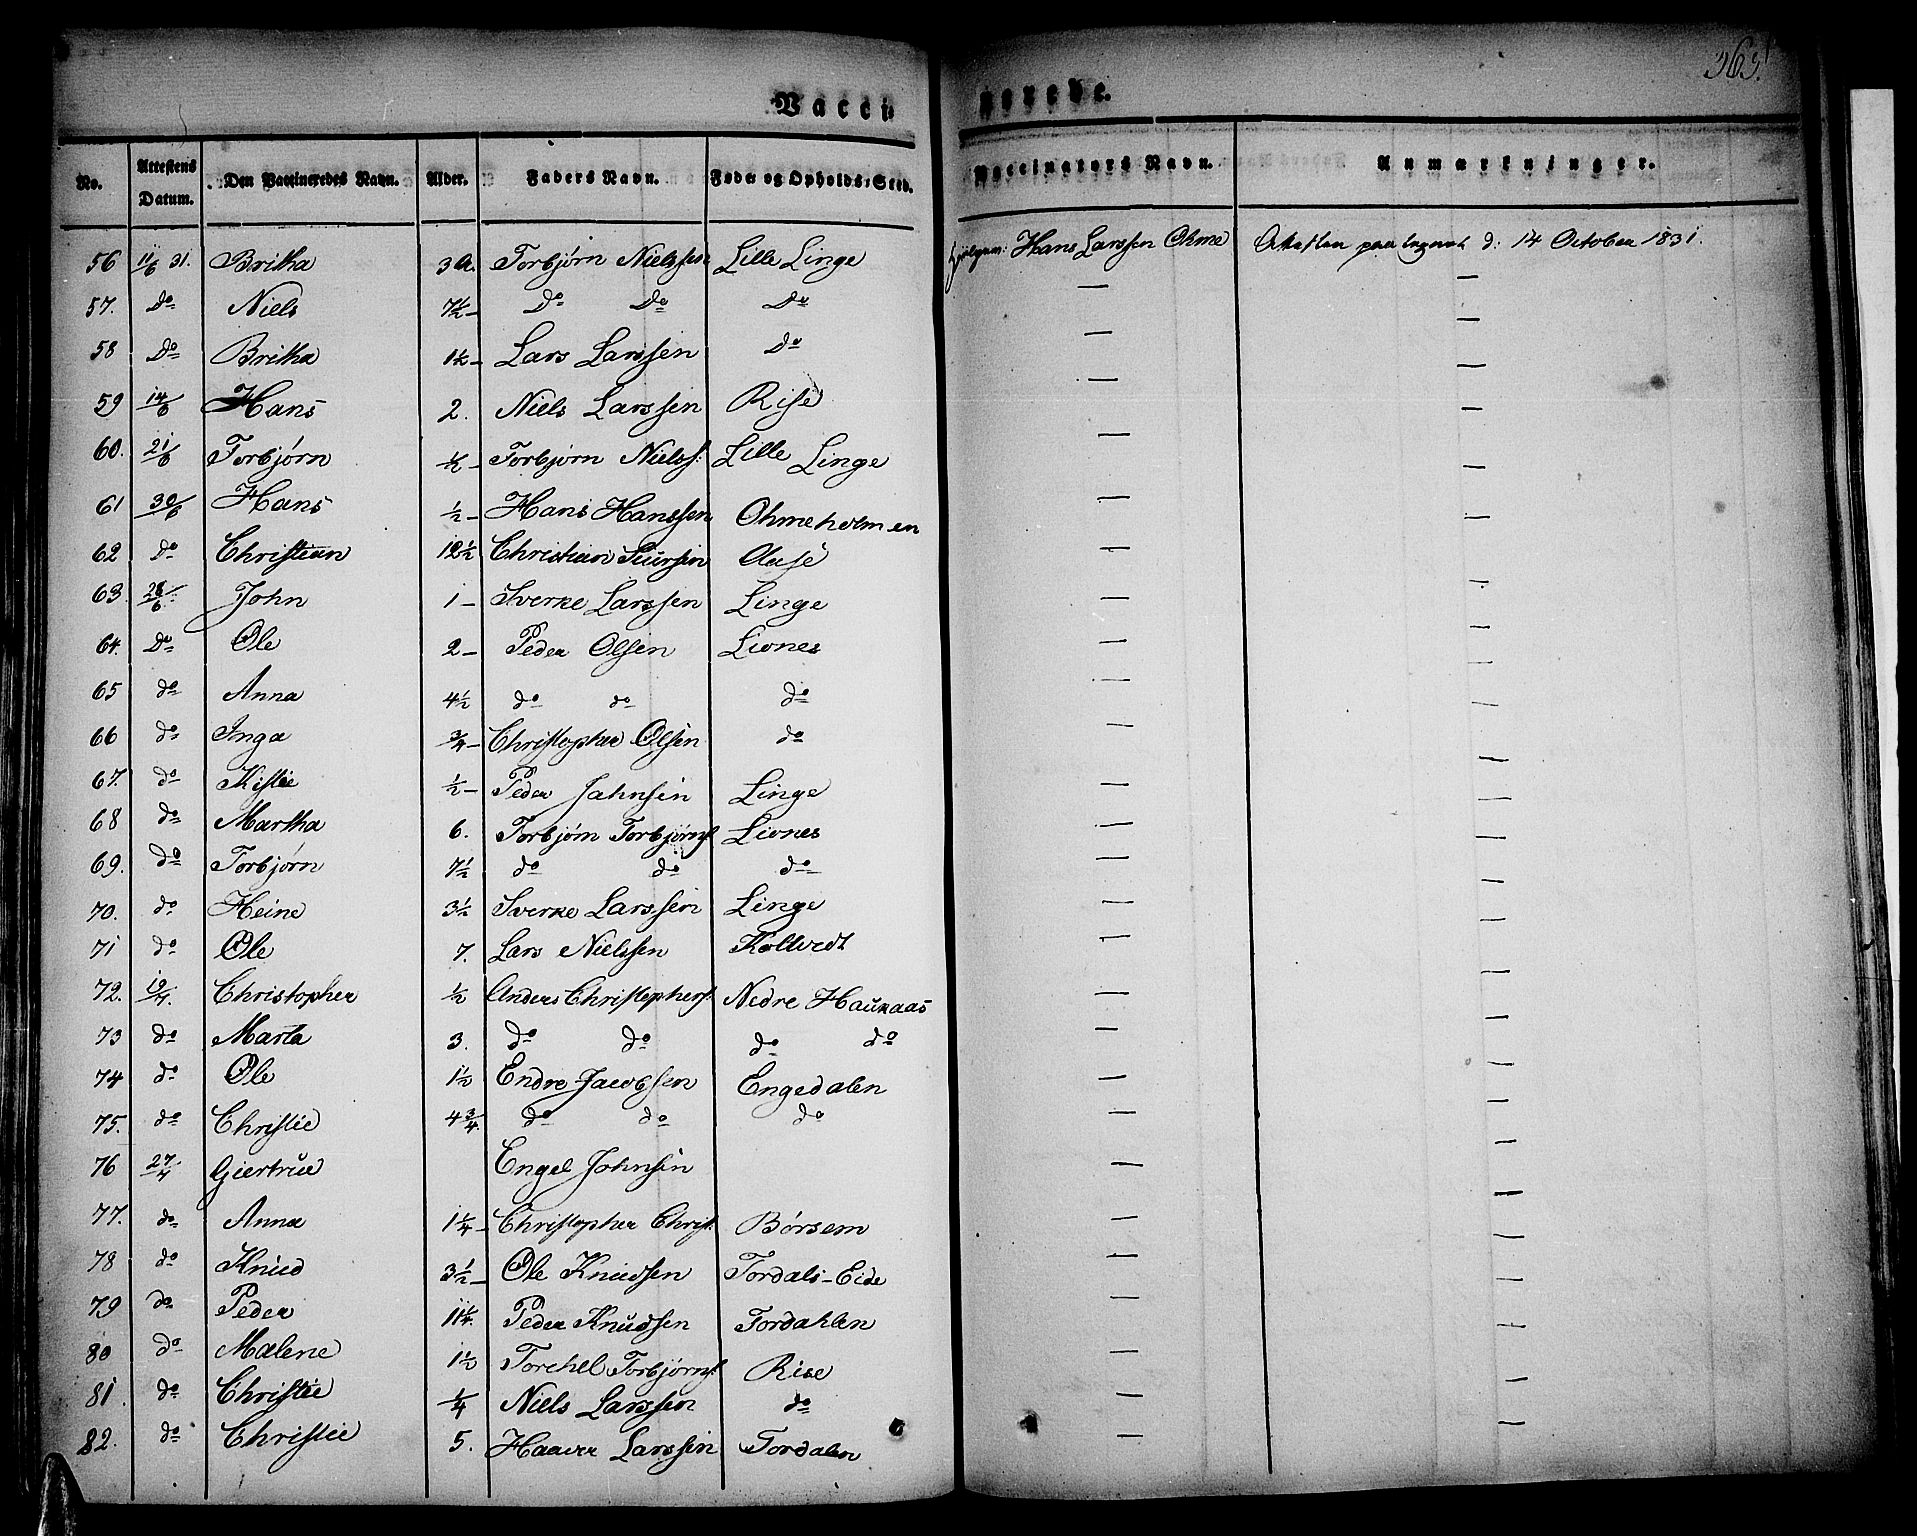 363.
Vacci nerede.
No. Attestens Datum. Den Vaccineredes Navn. Alder. Faders Navn. Føde og Opholds-Sted. Vaccinators Navn. Anmærkninger.
56 11/6 31. Britha 3 A. Torbjørn Nielssen Lille Linge Hans Larssen Ohme 14 October 1831.
57. Do Niels 7½ - Do Do Do — —
58 Do Britha 1½ - Lars Larssen Do — —
59 14/6 Hans 2. Niels Larssen Rise — —
60. 21/6 Torbjørn ½ - Torbjørn Nielss: Lille Linge — —
61 30/6 Hans ½ - Hans Hanssen Ohmeholmen — —
62 do Christian 12½ Christian Siursen Aase — —
63. 28/6 John 1 - Sverke Larssen Linge — —
64. Do Ole 2 - Peder Olsen Liones — —
65 do Anna 4½ do do do — —
66 do Inga ¾ - Christopher Olsen do — —
67. do Kistie ½ - Peder Johnsen Linge — —
68 do Martha 6. Torbjørn Torbjørns: Liones — —
69. do Torbjørn 7½ do do do — —
70. do Heine 3½ Sverke Larssen Linge — —
71 do Ole 7. Lars Nielssen Koltvedt — —
72. 19/7. Christopher ½ Anders Christophers: Nedre Haukaas — —
73 do Marta 3. do do do do — —
74 do Ole 1½ Endre Jacobsen Engedalen — —
75. do Christie 4¾. do do do — —
76 27/4 Giertrue Engel Johnsen — —
77. do Anna 1¼ - Christopher Christ: Børsem — —
78 do Knud 3½ - Ole Knudsen Tordals-Eide — —
79 do Peder 11¼ Peder Knudsen Tordahlen — —
80 do Malene 1½ Torchel Torbjørns: Rise — —
81. do Christie ¼ Niels Larssen do — —
82. do Christie 5. Haaver Larssen Tordalen — —